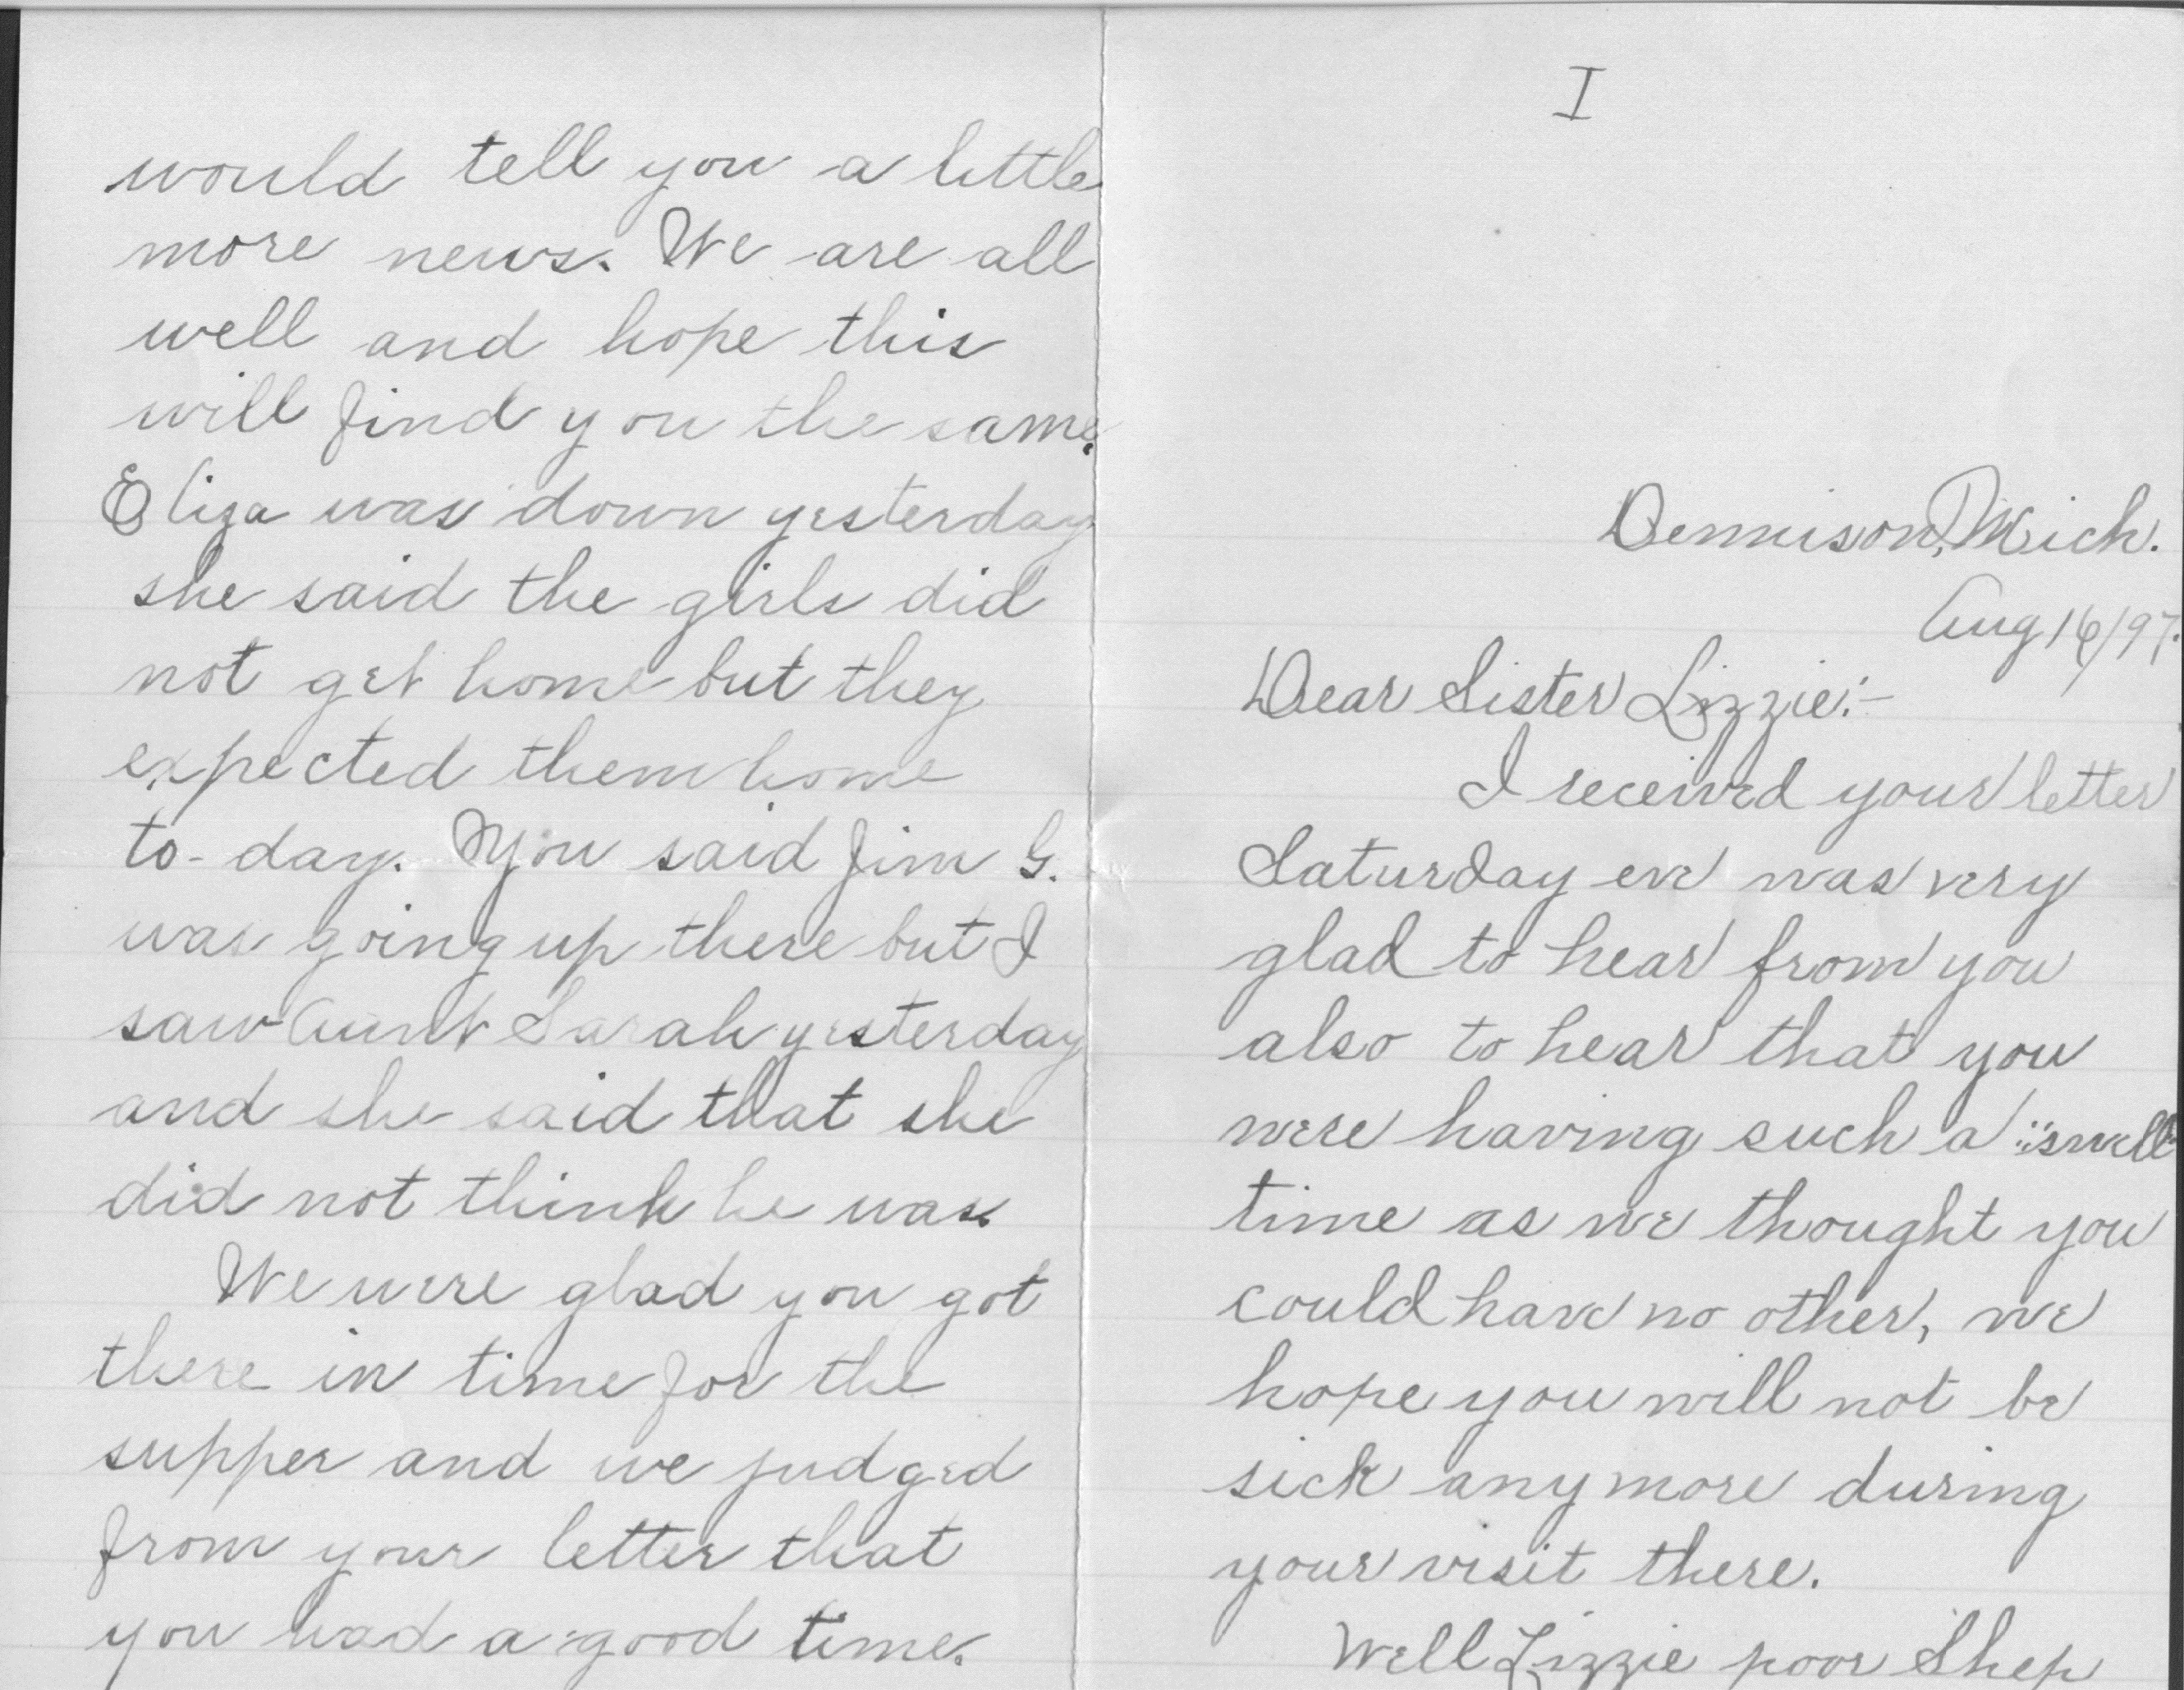 would tell you a little
more news. We are all
well and hope this
will find you the same.
Eliza was down yesterday
she said the girls did
not get home but they
expected them home
to-day. You said Jim G.
was going up there but I
saw Aunt Sarah yesterday
and she said that she
did not think he was.
We were glad you got
there in time for the
supper and we judged
from your letter that
you had a good time.
I
Dennison, Mich.
Aug 16/97.
Dear Sister Lizzie:-
I received your letter
Saturday eve was very
glad to hear from you
also to hear that you
were having such a "swell"
time as we thought you
could have no other, we
hope you will not be
sick any more during
your visit there.
Well Lizzie poor Shep